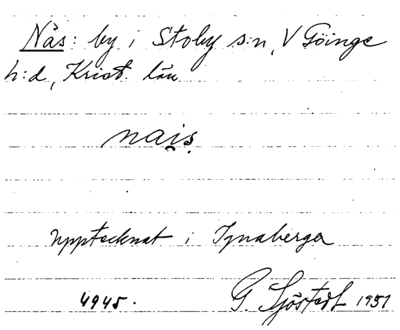 Nås: by i Stoby s:n, V Göinge
h:d, Krist. län
nais
Upptecknat i Ignaberga
4945.
G. Sjöstedt 1951